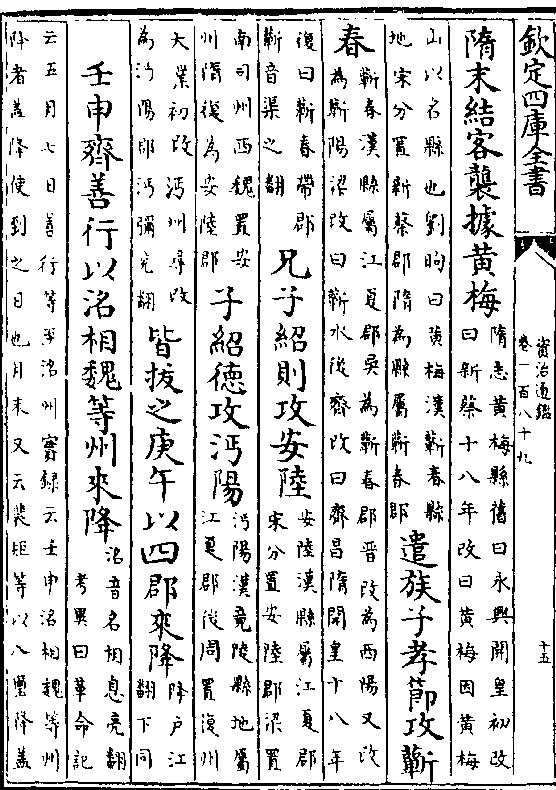 欽定四庫全書
資治通鑑
卷一百八十九
十五
隋末結客襲據黃梅
隋志黃梅縣舊曰永興開皇初改
曰新蔡十八年改曰黃梅因黃梅
山以名縣也劉昫曰黃梅漢蘄春縣
地宋分置新蔡郡隋為縣屬蘄春郡
遣族子孝節攻蘄
春
蘄春漢縣屬江夏郡吳為蘄春郡晉改為西陽又改
為蘄陽梁改曰蘄水後齊改曰齊昌隋開皇十八年
復曰蘄春帶郡
蘄音渠之翻
兄子紹則攻安陸
安陸漢縣屬江夏郡
宋分置安陸郡梁置
南司州西魏置安
州隋復為安陸郡
子紹德攻沔陽
沔陽漢竟陵縣地屬
江夏郡後周置復州
大業初改沔州尋改
為沔陽郡沔彌兖翻
皆拔之庚午以四郡來降
降户江
翻下同
壬申齊善行以洺相魏等州來降
洺音名相息亮翻
考異曰革命記
云五月七日善行等至洺州實録云壬申洺相魏等州
降者蓋降使到之日也月末又云裴矩等以八璽降蓋